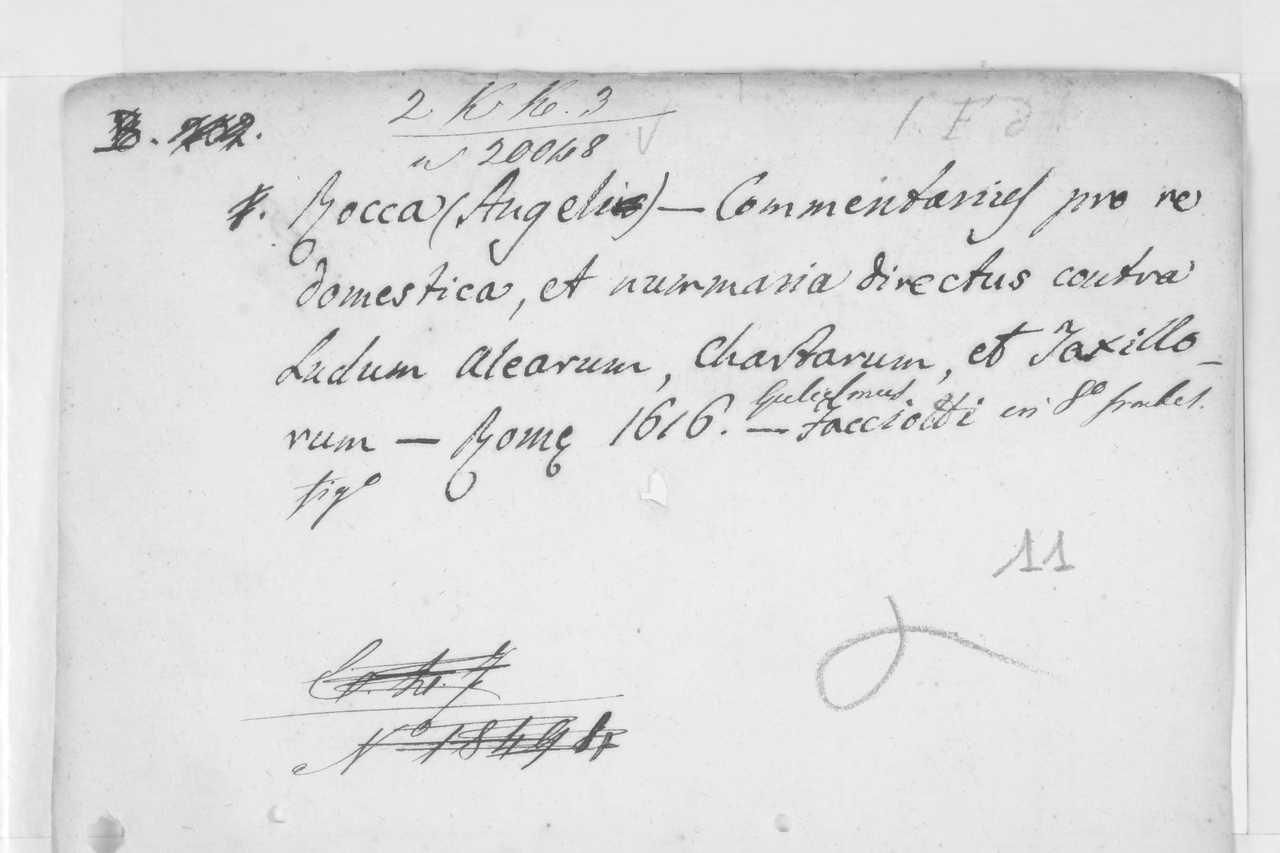 2. K K. 3
1. F d
20048
Rocca (Angeli) — Commentarius pro re
domestica, et nummaria directus contra
Ludum Alearum, Chartarum, et Taxillo-
rum — Romę 1616. — Gulielmus Facciotti in 8º
figº
11
Nº 18491